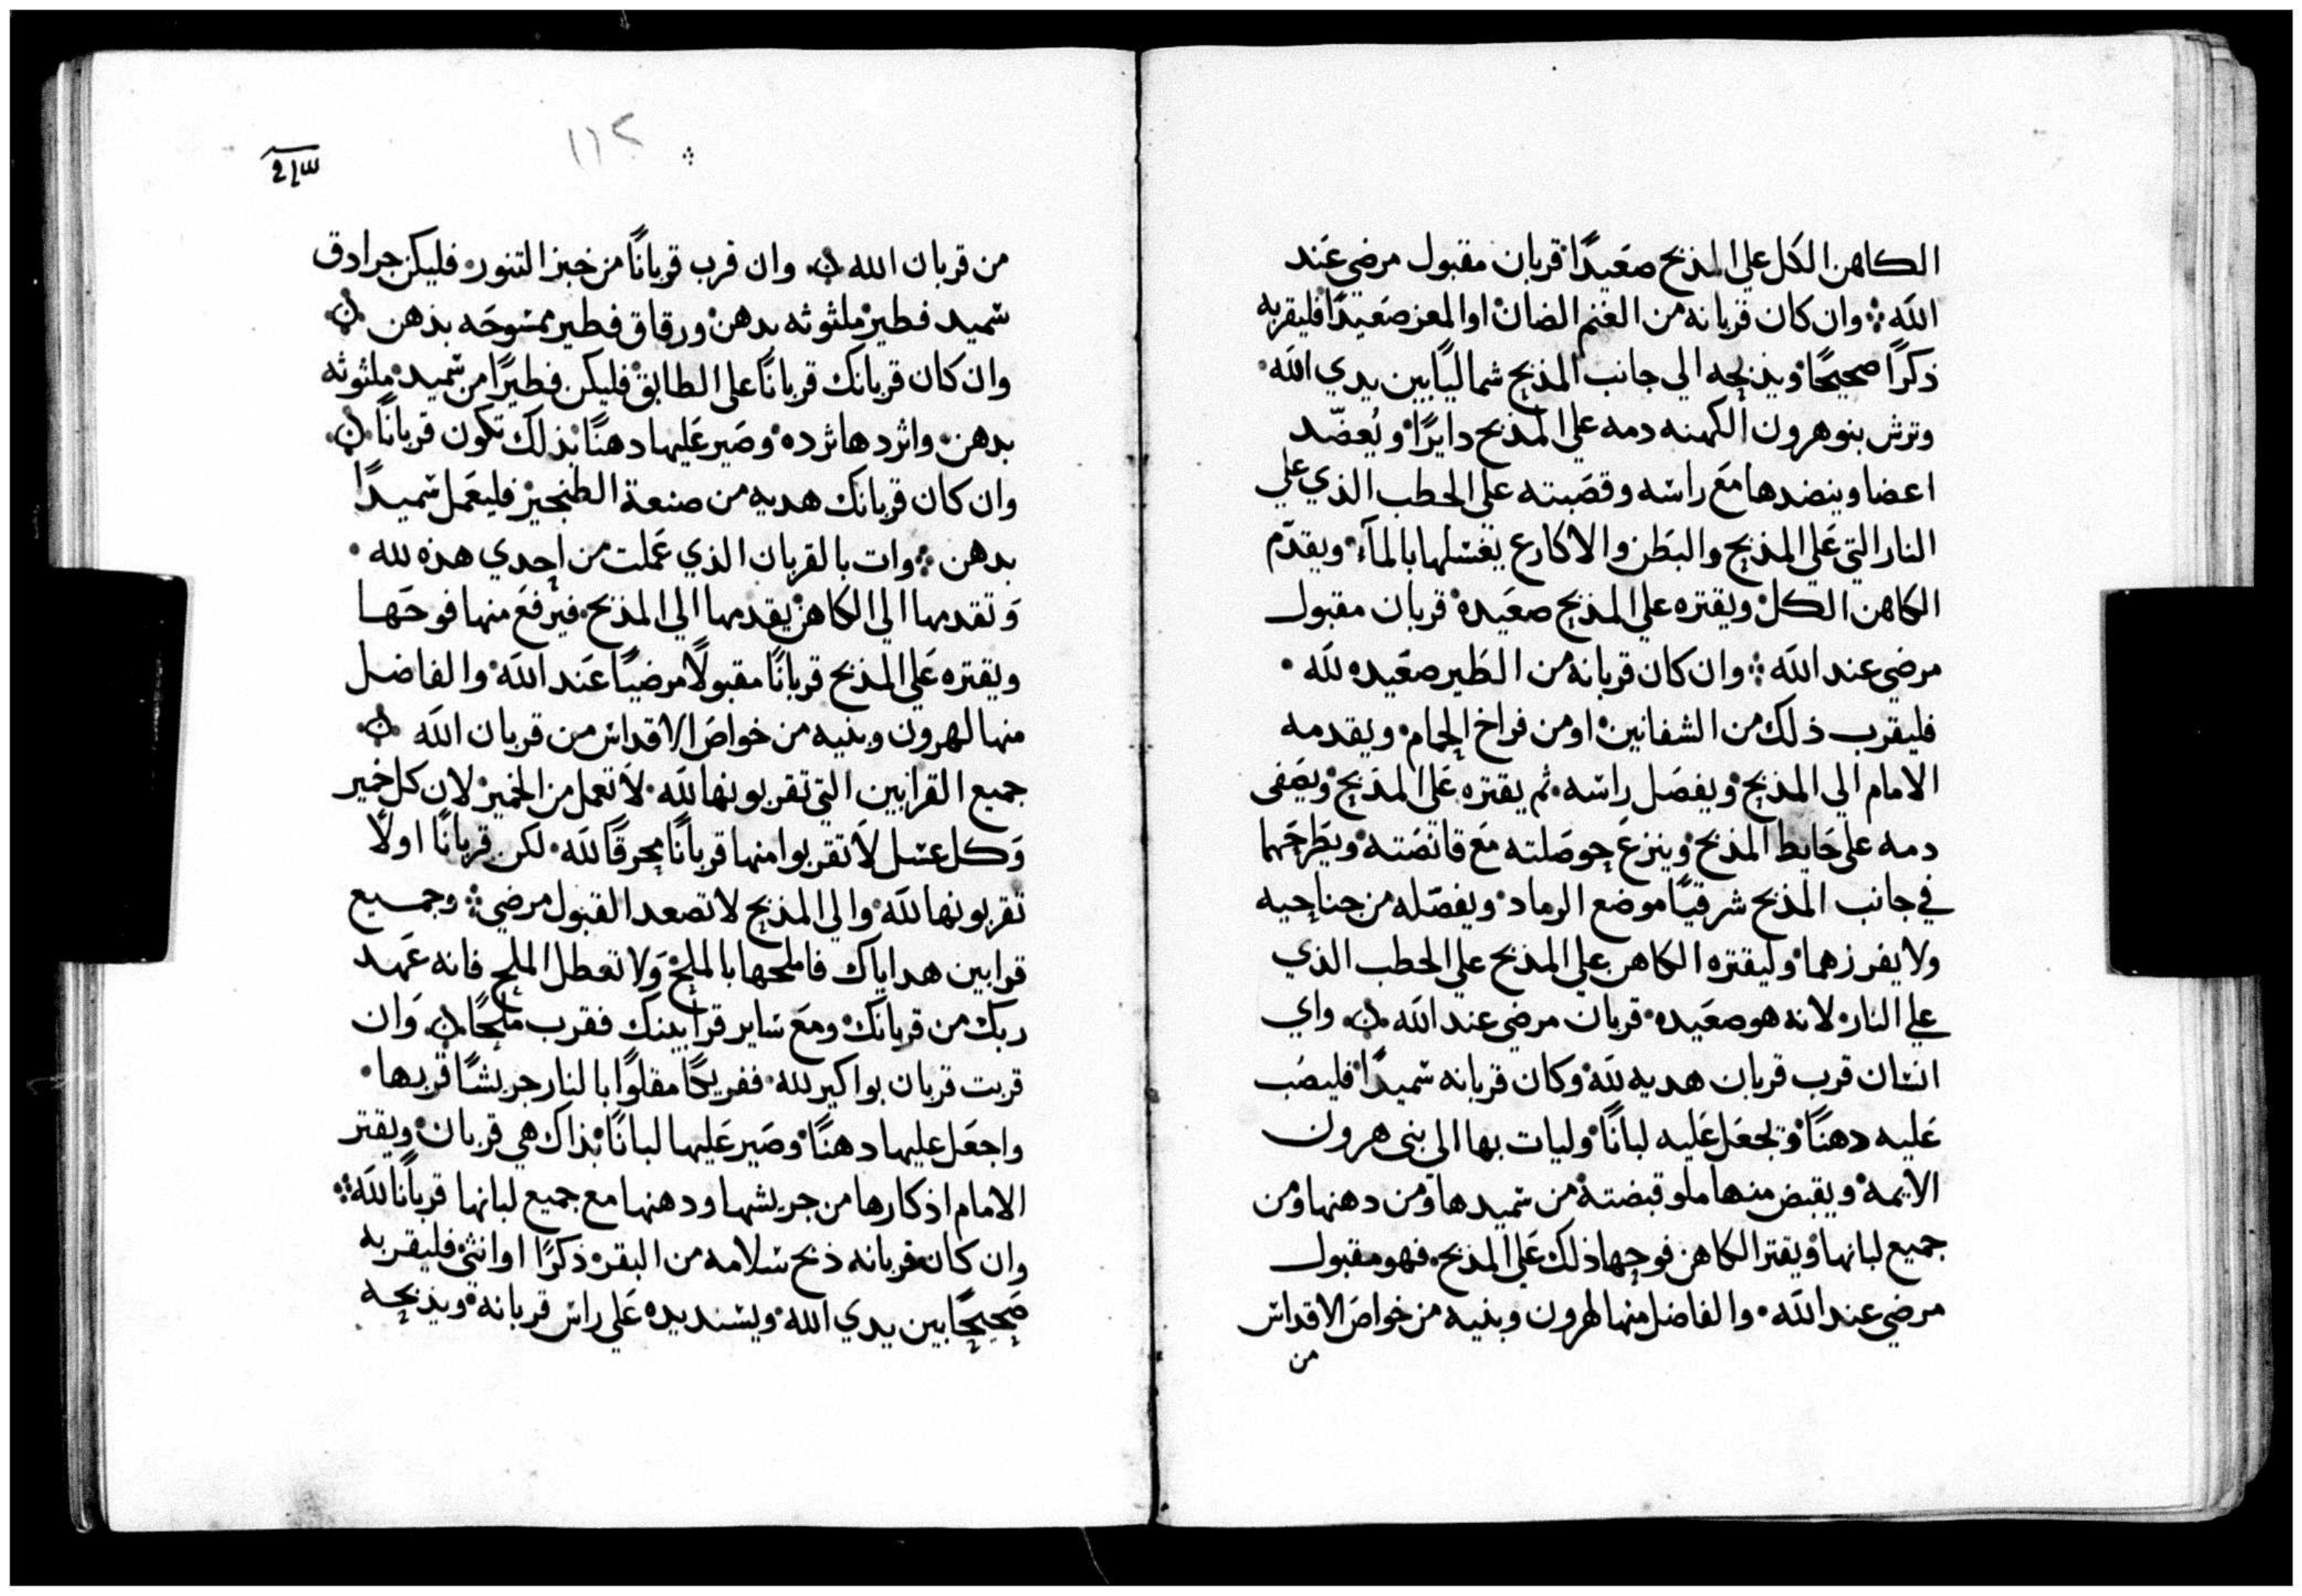 الكاهن الكل علي المذبح صعيدًا قربان مقبول مرضي عند
الله ⁘ وان كان قربانه من الغنم الضان او المعز صعيدًا فليقربه
ذكرًا صحيحًا ويذبحه الي جانب المذبح شماليًا بين يدي الله
وترش بنو هرون الكهنه دمه علي المذبح دايرًا ويُعضّد
اعضا وينضدها مع راسه وقصبته علي الحطب الذي علي
النار التي علي المذبح والبطن والاكارع يغسلها بالمآء ويقدّم
الكاهن الكل ويقتره علي المذبح صعيده قربان مقبول
مرضي عند الله ⁘ وان كان قربانه من الطير صعيده لله
فليقرب ذلك من الشفانين او من فراخ الحمام ويقدمه
الامام الي المذبح ويفصل راسه ثم يقتره علي المذبح ويصفى
دمه علي حايط المذبح وينزع حوصلته مع قانصته ويطرحهما
في جانب المذبح شرقيًا موضع الرماد ويفصّله من جناحيه
ولا يفرزهما وليقتره الكاهن علي المذبح علي الحطب الذي
علي النار لانه هو صعيده قربان مرضي عند الله واي
انسان قرب قربان هديه لله وكان قربانه سميدًا فليصب
عليه دهنًا وتجعل عليه لبانًا وليات بها الي بني هرون
الايمة ويقبض منها ملو قبضته من سميدها ومن دهنها ومن
جميع لبانها ويقتر الكاهن فوحها ذلك علي المذبح فهو مقبول
مرضي عند الله والفاضل منها لهرون وبنيه من خواص الاقداس
من
١١٢
من قربان الله وان قرب قربانًا من خبز التنور فليكن جرادق
سميد فطير ملثوثه بدهن ورقاق فطير ممسوحه بدهن
وان كان قربانك قربانًا علي الطابق فليكن فطيرًا من سميد ملثوثه
بدهن واثردها ثرده وصير عليها دهنًا بذلك تكون قربانًا
وان كان قربانك هديه من صنعة الطنجير فليعمل سميدًا
بدهن ⁘ وات بالقربان الذي عملت من احدي هذه لله
وتقدمها الي الكاهن يقدمها الي المذبح فيرفع منها فوحها
ويقتره علي المذبح قربانًا مقبولًا مرضيًا عند الله والفاضل
منها لهرون وبنيه من خواص الاقداس من قربان الله
جميع القرابين التي تقربونها لله لا تعمل من الخمير لان كل خمير
وكل عسل لا تقربوا منها قربانًا محرقًا لله لكن قربانًا اولًا
تقربونها لله والي المذبح لا تصعد القبول مرضي ⁘ وجميع
قرابين هداياك فاملحها بالملح ولا تعطل الملح فانه عهد
ربك من قربانك ومع ساير قرابينك فقرب ملحًا وان
قربت قربان بواكير لله ففريكًا مقلوًا بالنار جريشًا قربها
واجعل عليها دهنًا وصير عليها لبانًا بذاك هي قربان ويقتر
الامام اذكارها من جريشها ودهنها مع جميع لبانها قربانًا لله ⁘
وان كان قربانه ذبح سلامه من البقر ذكرًا او انثى فليقربه
صحيحًا بين يدي الله ويسند يده علي راس قربانه ويذبحه